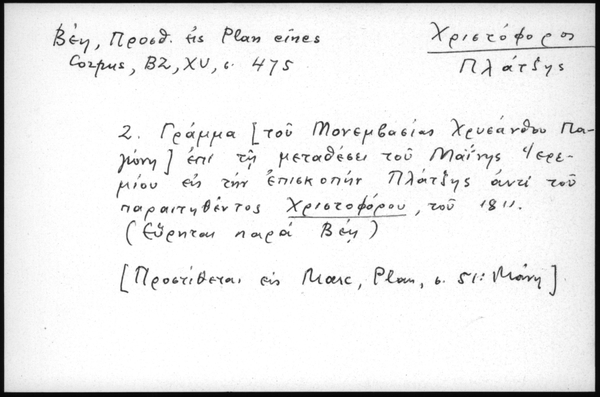 Βέη, Προσθ. εἰς Plan eines
Corpus, BZ, XV, σ. 475
Χριστόφορος
Πλάτζης
2. Γράμμα [τοῦ Μονεμβασίας Χρυσάνθου Πα-
γώνη] ἐπὶ τῇ μεταθέσει τοῦ Μαΐνης Ἱερε-
μίου εἰς τὴν ἐπισκοπὴν Πλάτζης ἀντὶ τοῦ
παραιτηθέντος Χριστοφόρου, τοῦ 1811.
(Εὕρηται παρὰ Βέῃ)
[Προστίθεται εἰς Marc, Plan, σ. 51: Μάνη]